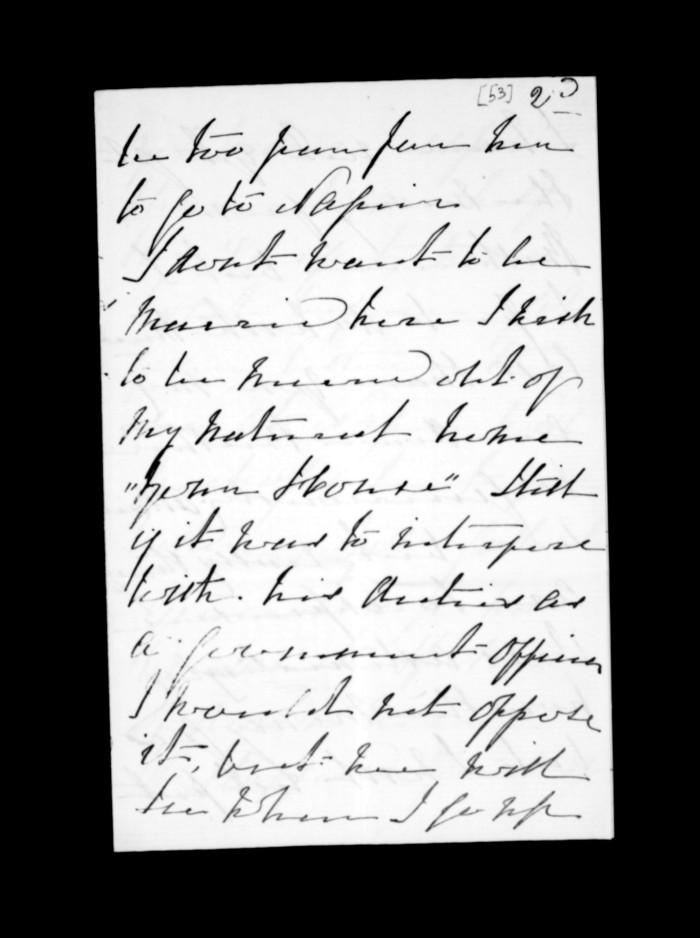 [53] 2
be too far for him
to go to Napier
I dont want to be
married here I wish
to be married out of
my natural home
"your House" Still
if it was to interfere
with his duties as
a government officer
I would not oppose
it, but he will
be when I go up